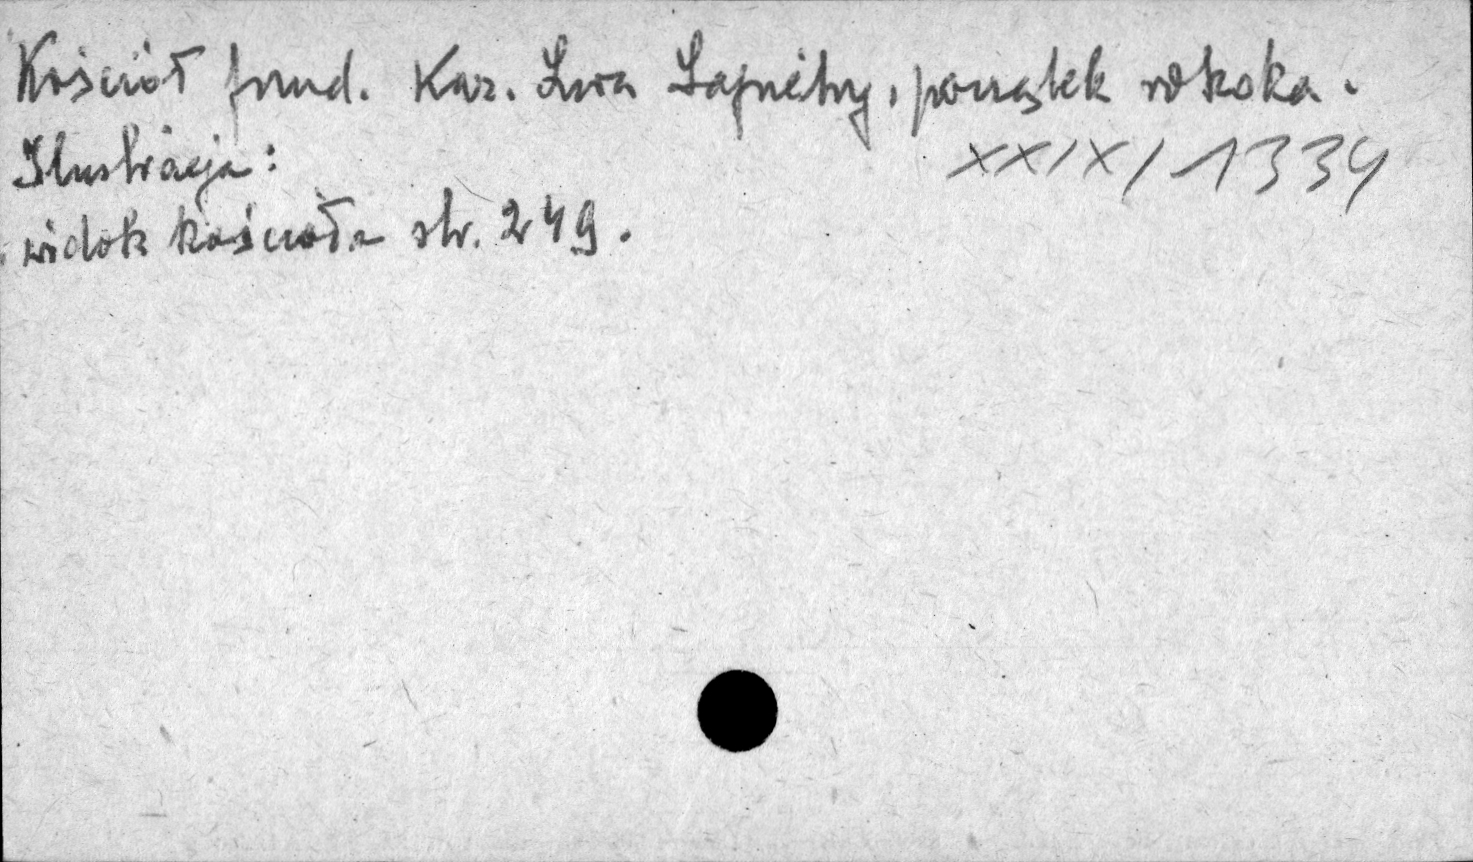 Kościół fund. Kaz. Lwa Sapiehy, początek rokoka.
Ilustracja:
XXIX/1334
widok kościoła str. 249.